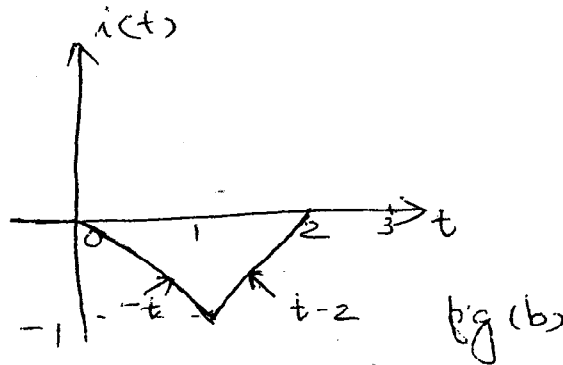 i(t)
0 1 2 3 t
-t t-2
-1
fig (b)